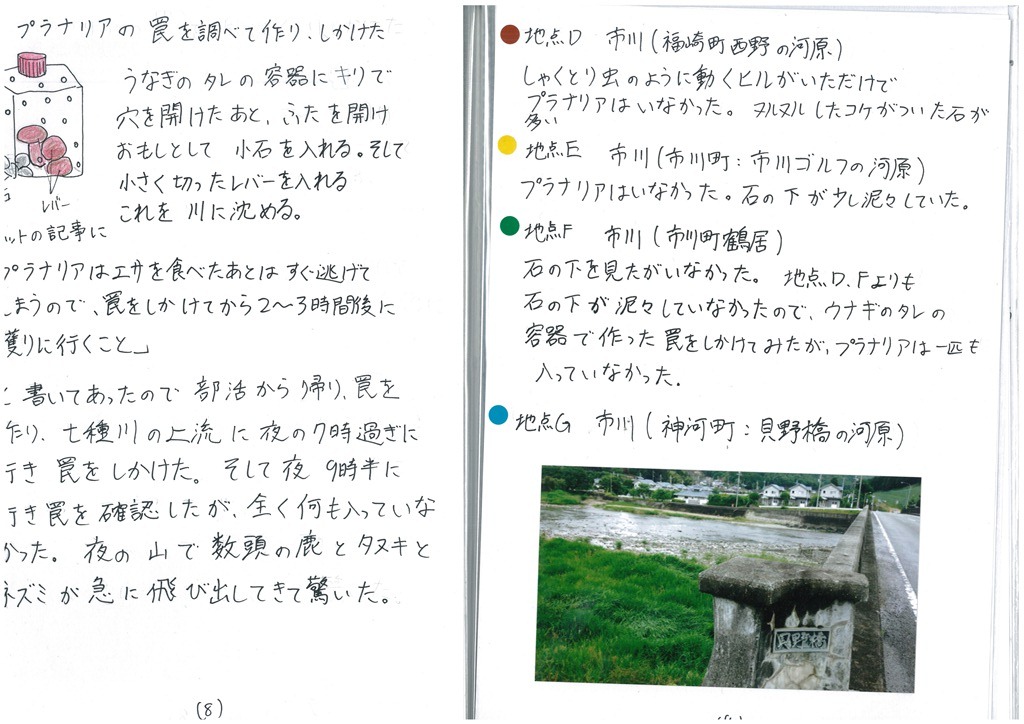 プラナリアの 罠を調べて作り、しかけた
うなぎの タレの 容器に キリで
穴を開けたあと、ふたを開け
おもしとして 小石を入れる。そして
小さく切ったレバーを入れる
これを 川に沈める。
レバー
ットの記事に
プラナリアはエサを食べたあとは すぐ逃げて
しまうので、罠をしかけてから2〜3時間後に
獲りに行くこと」
と 書いてあったので 部活から帰り、罠を
作り、七種川の上流に 夜の7時過ぎに
行き 罠をしかけた。そして夜 9時半に
行き罠を確認したが、全く何も入っていな
かった。夜の 山で 数頭の鹿と タヌキと
ネズミが急に飛び出してきて驚いた。
(8)
地点D 市川(福崎町西野の河原)
しゃくとり虫のように動くヒルがいただけで
プラナリアはいなかった。ヌルヌルしたコケがついた石が
多い
地点E 市川(市川町:市川ゴルフの河原)
プラナリアはいなかった。石の下が少し泥々していた。
地点F 市川(市川町鶴居)
石の下を見たがいなかった。 地点D、Fよりも
石の下が泥々していなかったので、ウナギのタレの
容器で作った罠をしかけてみたが、プラナリアは一匹も
入っていなかった.
地点G 市川(神河町:貝野橋の河原)
貝野橋